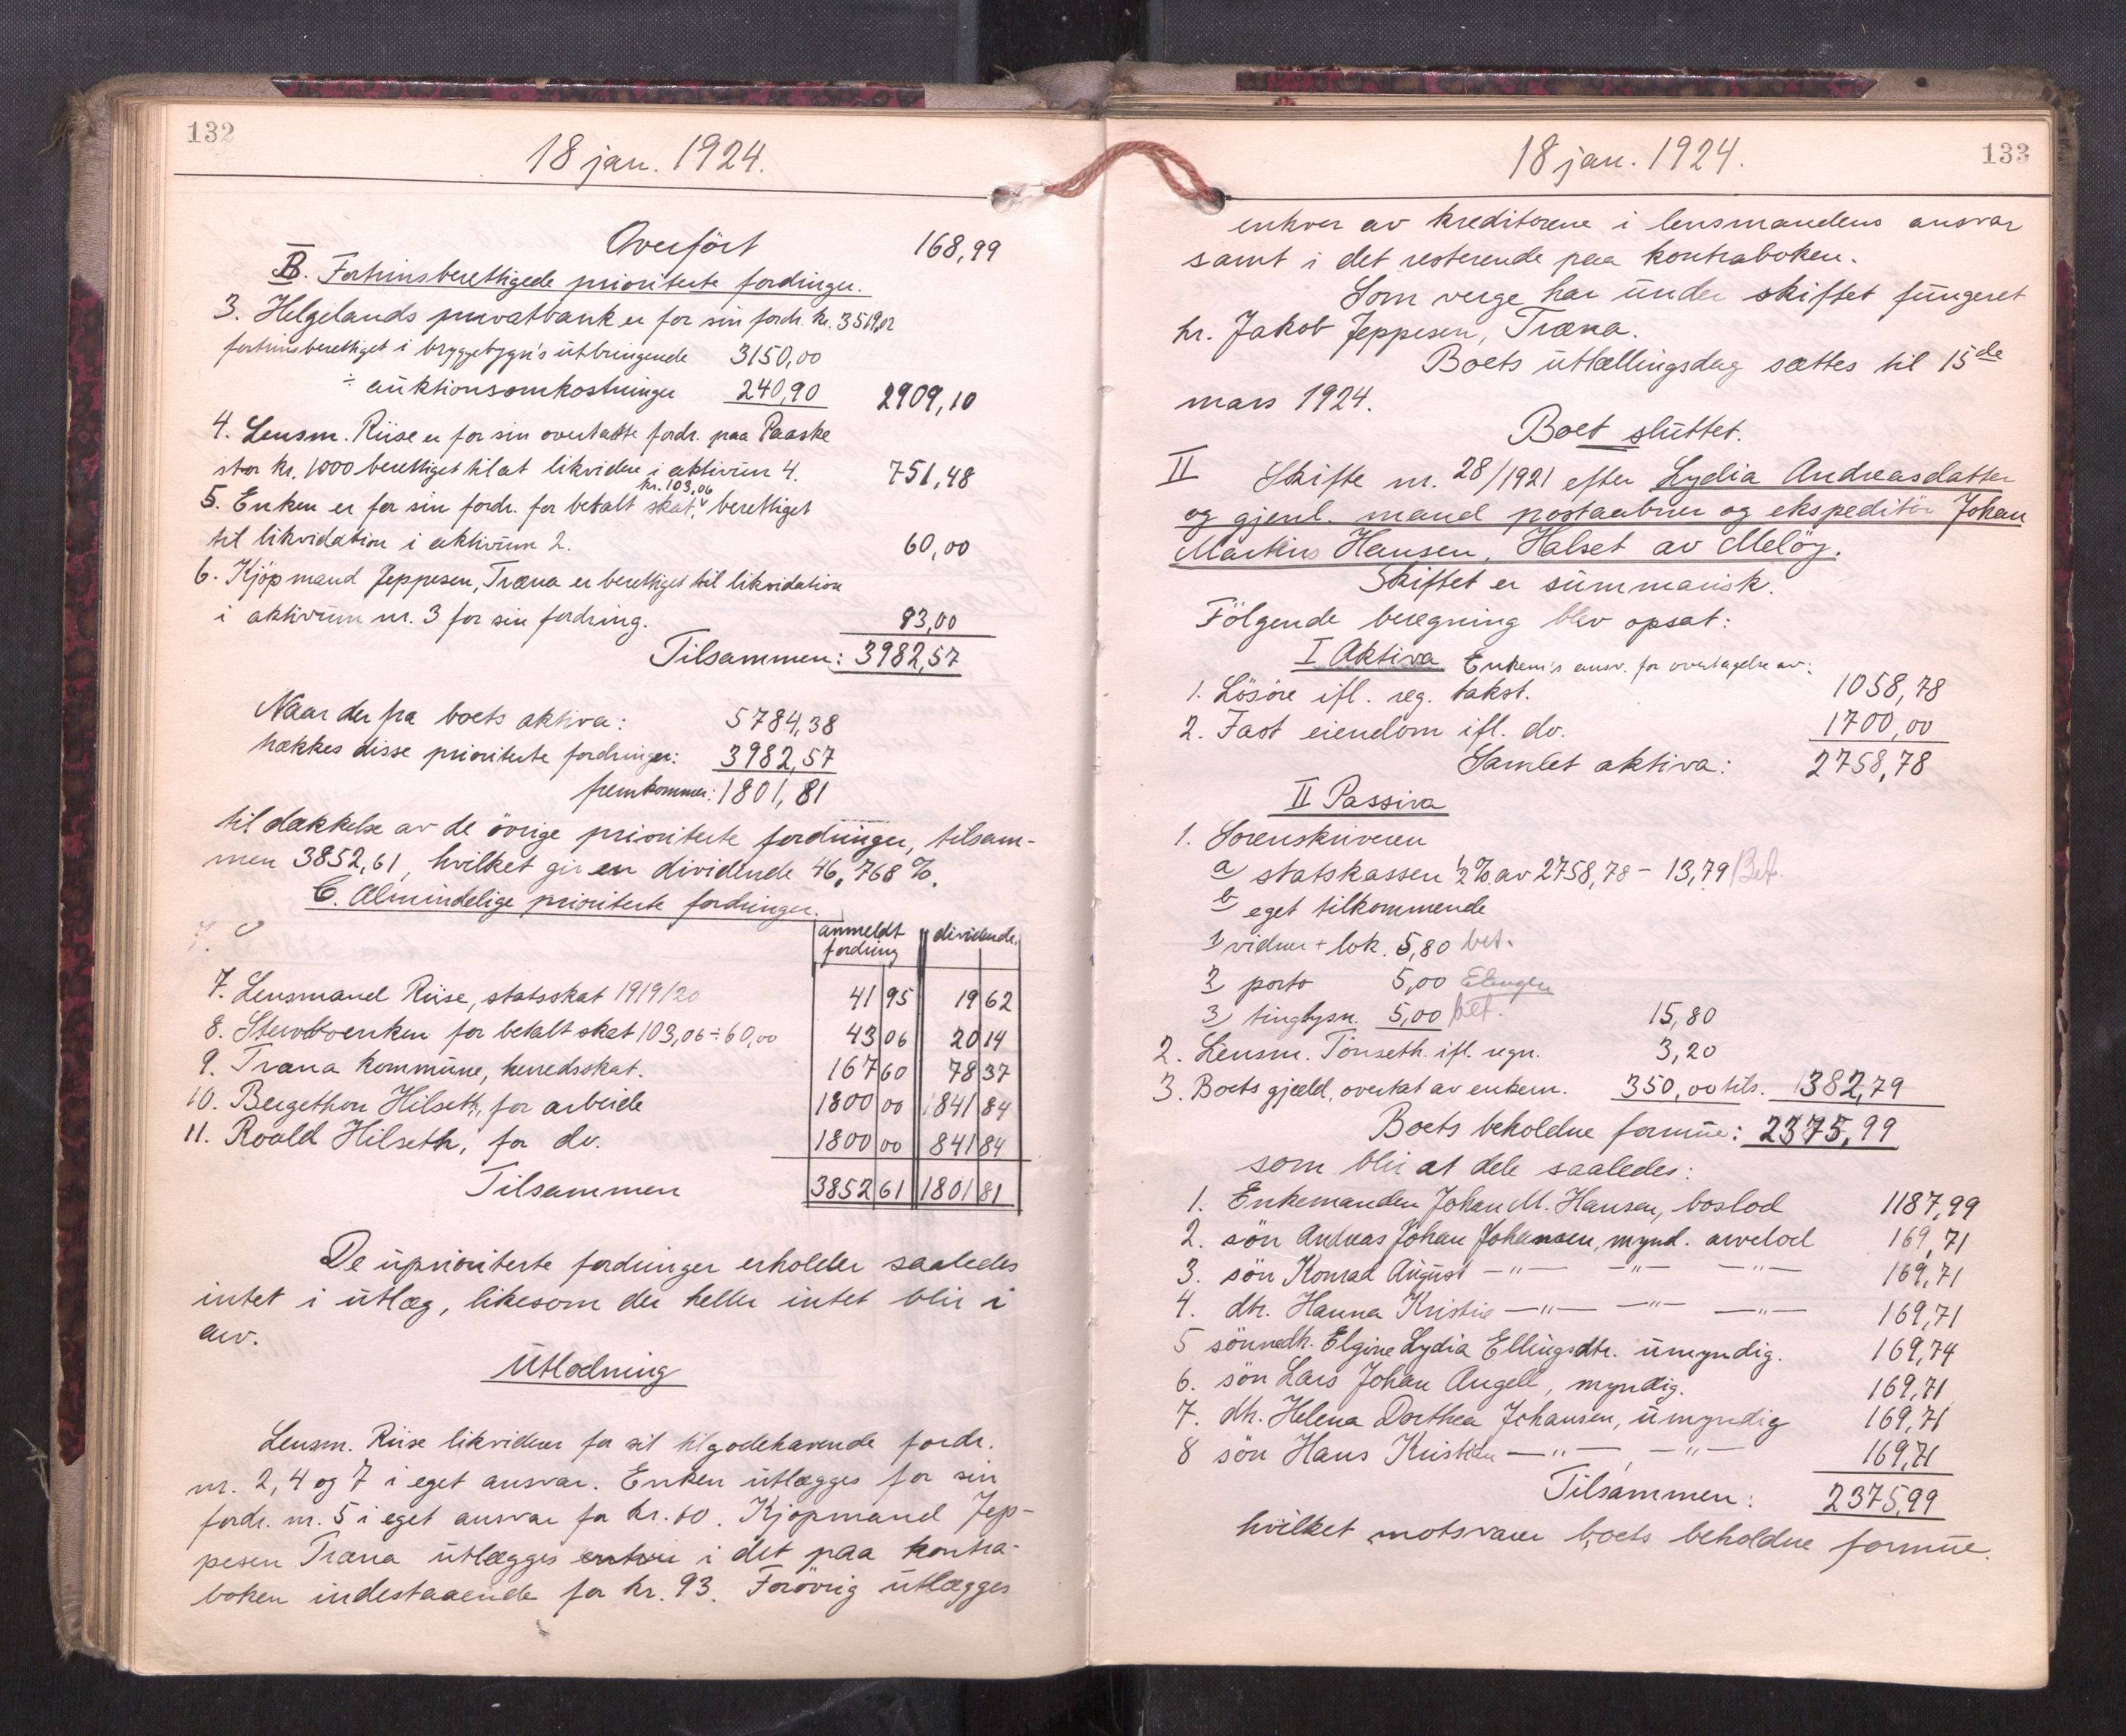 132
18 jan. 1924.
Overført 168,99
B. Fortrinsberettigede prioriterte fordringer.
3. Helgelands privatbank er for sin fordr. kr. 3519,02
fortrinsberettiget i bryggebygn's utbringende 3150,00
÷ auktionsomkostninger 240,90 2909,10
4. Lensm. Riise er for sin overtatte fordr. paa Paaske
stor kr. 1000 berettiget til at likvidere i aktivum 4. 751,48
kr. 103,06
5. Enken er for sin fordr. for betalt skat, berettiget
til likvidation i aktivum 2. 60,00
6. Kjøpmand Jeppesen, Træna er berettiget til likvidation
i aktivum nr. 3 for sin fordring. 93,00
Tilsammen: 3982,57
Naar der fra boets aktiva: 5784,38
trækkes disse prioriterte fordringer: 3982,57
fremkommer: 1801,81
til dækkelse av de øvrige prioriterte fordringer, tilsam-
men 3852,61, hvilket gir en dividende 46,768 %.
C. Almindelige prioriterte fordringer.
anmeldt fordring dividende.
7. Lensmand Riise, statsskat 1919/20 41 95 19 62
8. Stervboenken for betalt skat 103,06 ÷ 60,00 43 06 20 14
9. Træna kommune, herredsskat. 167 60 78 37
10. Bergethon Hilseth, for arbeide 1800 00 841 84
11. Roald Hilseth, for do. 1800 00 841 84
Tilsammen 3852 61 1801 81
De uprioriterte fordringer erholder saaledes
intet i utlæg, likesom der heller intet blir i
arv.
Utlodning
Lensm. Riise likviderer for sit tilgodehavende fordr.
nr. 2, 4 og 7 i eget ansvar. Enken utlægges for sin
fordr. nr. 5 i eget ansvar for kr. 60. Kjøpmand Jep-
pesen Træna utlægges i det paa kontra-
boken indestaaende for kr. 93. Forøvrig utlægges
133
18 jan. 1924.
enhver av kreditorene i lensmandens ansvar
samt i det resterende paa kontraboken.
Som verge har under skiftet fungeret
hr. Jakob Jeppesen, Træna.
Boets utlællingsdag sættes til 15de
mars 1924.
Boet sluttet.
II Skifte nr. 28/1921 efter Lydia Andreasdatter
og gjenl. mand postaabner og ekspeditør Johan
Martin Hansen, Halset av Meløy.
Skiftet er summarisk.
Følgende beregning blev opsat:
I Aktiva Enkem's ansv. for overtagelse av:
1. Løsøre ifl. reg. takst. 1058,78
2. Fast eiendom ifl. do. 1700,00
Samlet aktiva: 2758,78
II Passiva
1. Sorenskriveren
a statskassen ½% av 2758,78 - 13,79 Bet.
b eget tilkommende
1) vidner + lok. 5,80 bet.
2 porto 5,00
3) tinglysn. 5,00 bet. 15,80
2. Lensm. Tønseth. ifl. regn. 3,20
3. Boets gjæld, overtat av enkem. 350,00 tils. 382,79
Boets beholdne formue: 2375,99
som blir at dele saaledes:
1. Enkemanden Johan M. Hansen, boslod 1187,99
2. søn Andreas Johan Johansen, mynd. arvelod 169,71
3. søn Konrad August —"— —"— —"— 169,71
4. dtr. Hanna Kristine —"— —"— —"— 169,71
5 sønnedtr. Elgine Lydia Ellingsdtr. umyndig. 169,74
6. søn Lars Johan Angell, myndig. 169,71
7. dtr. Helena Dorthea Johansen, umyndig 169,71
8 søn Hans Kristian —"—, —"— 169,71
Tilsammen: 2375,99
hvilket motsvarer boets beholdne formue.